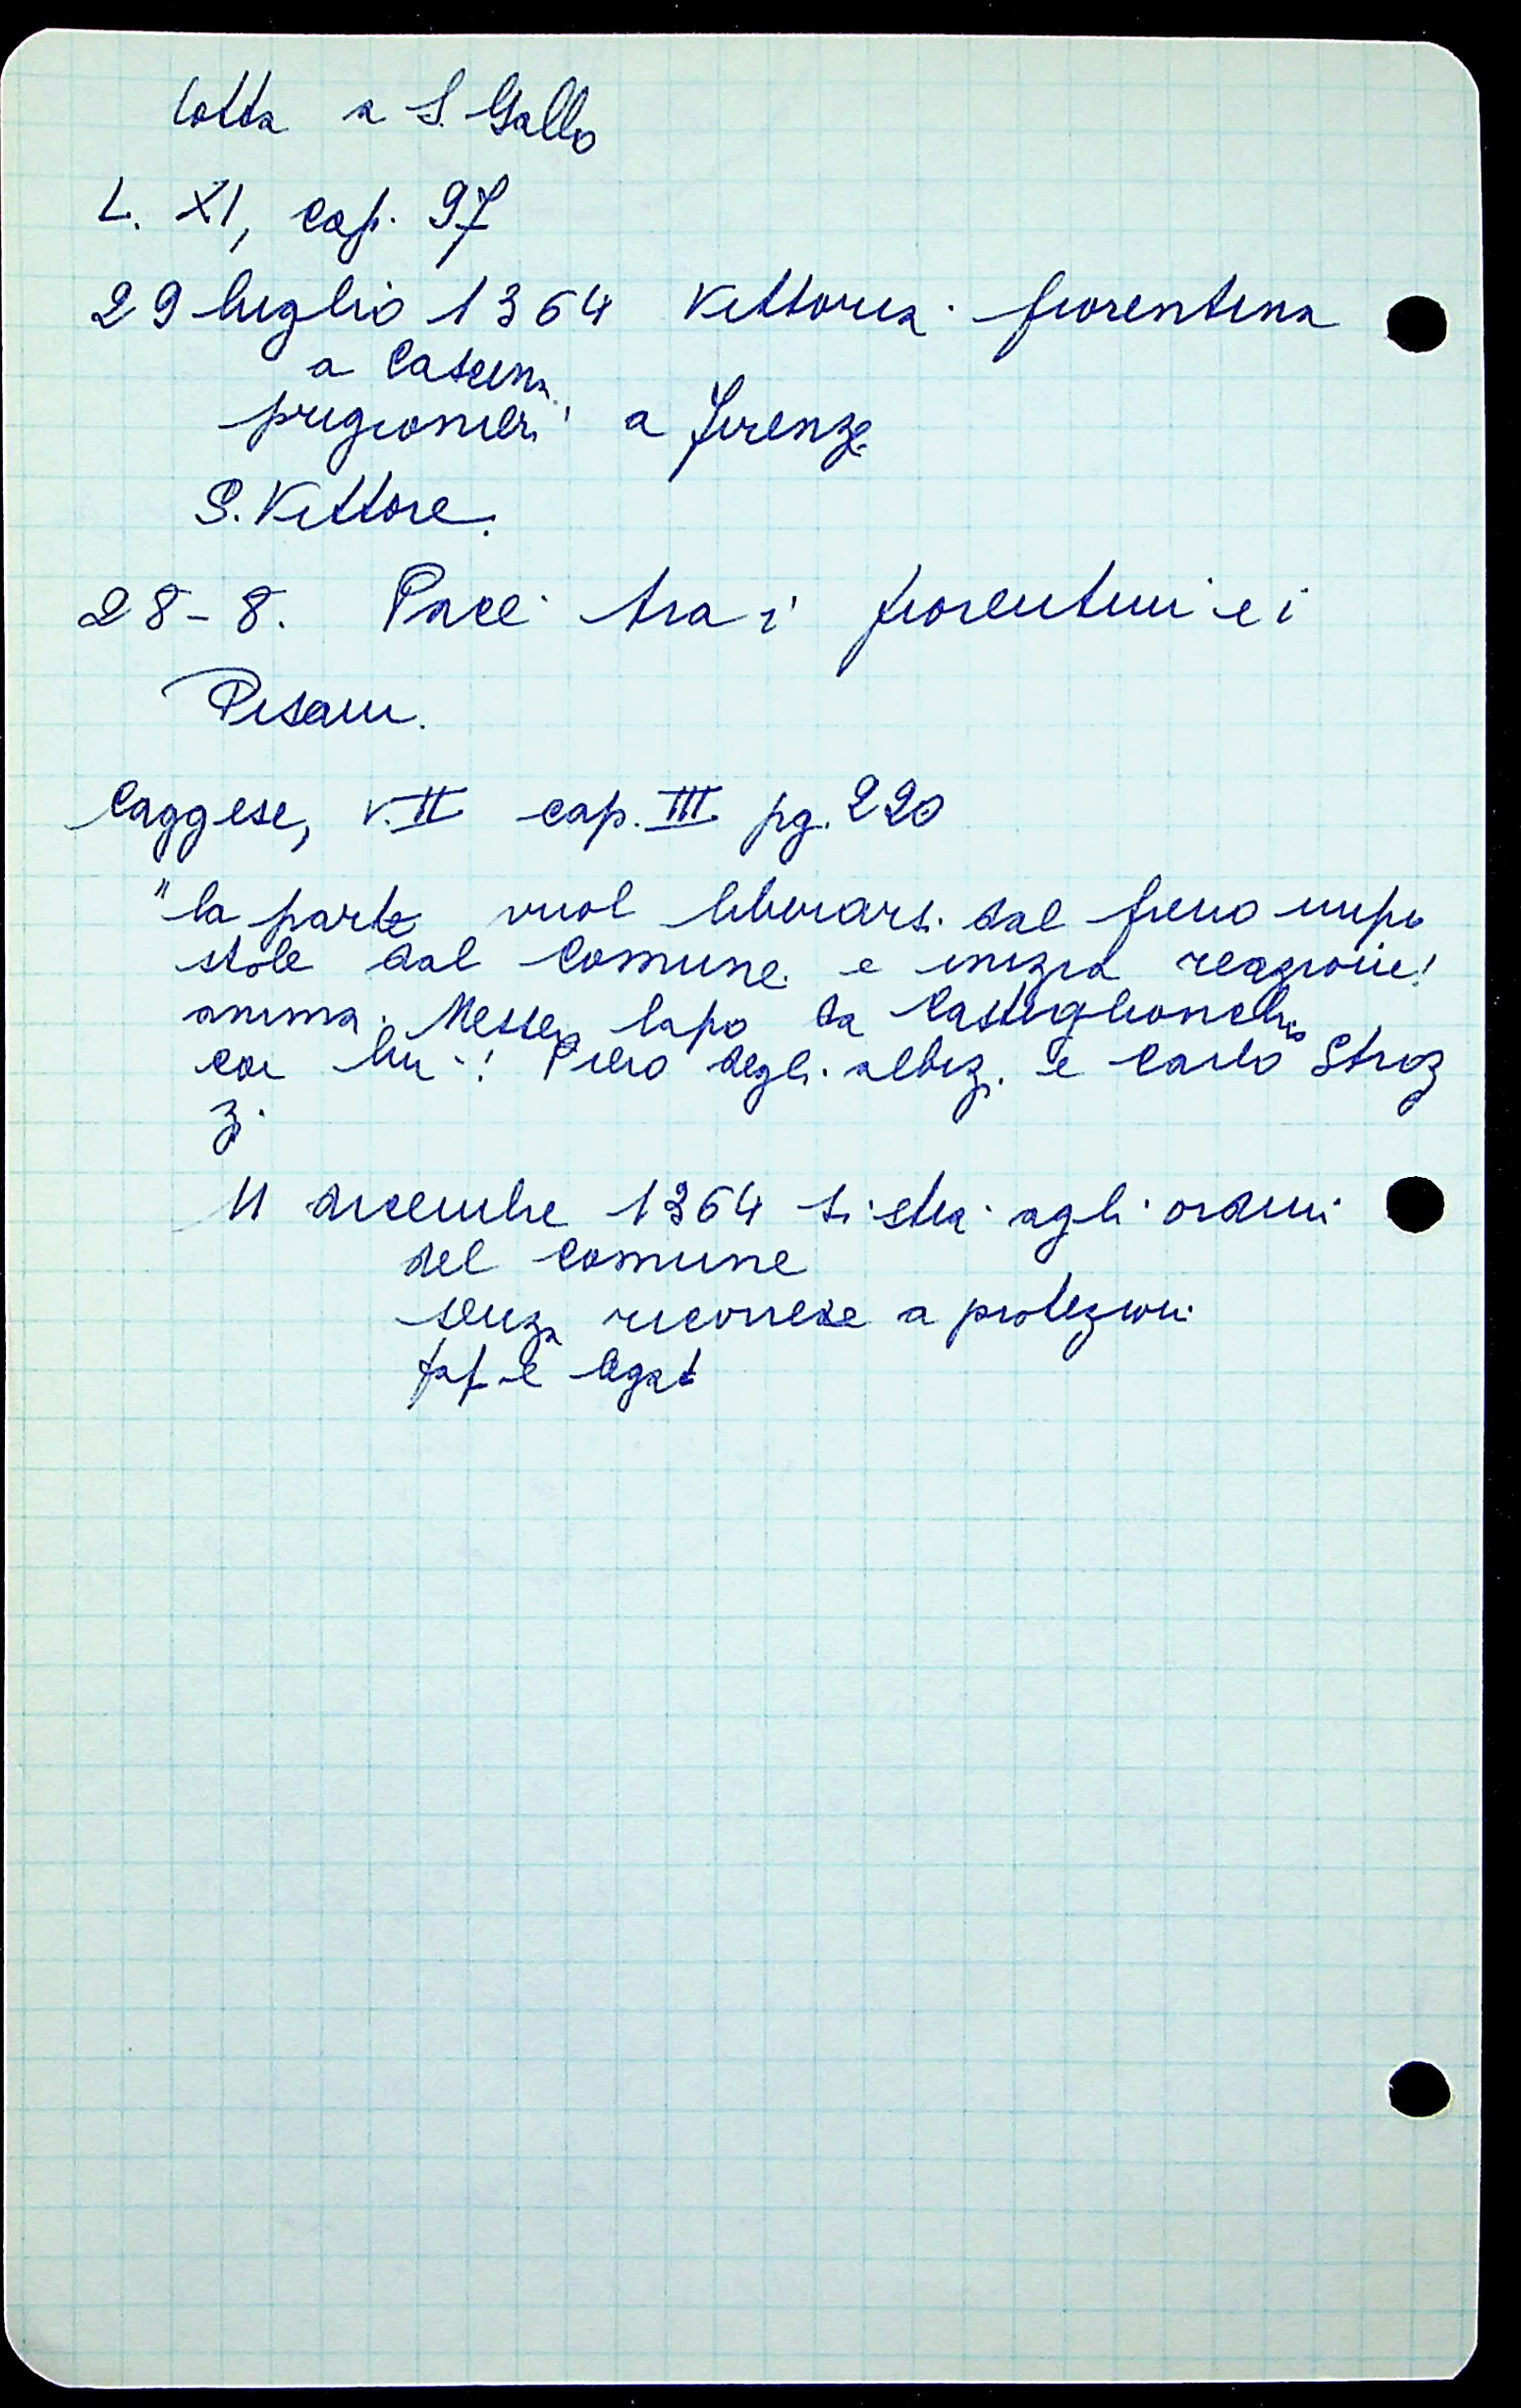 lotta a S. Gallo
L. XI, cap. 97
29 luglio 1364 Vittoria fiorentina
a Cascina
prigionieri a Firenze
S. Vittore.
28-8. Pace tra i fiorentini e i
Pisani.
Caggese, v. II cap. III pg. 220
"la parte vuol liberarsi dal freno impo
stole dal Comune e inizia reazione!
anima. Messer Lapo da Castiglionchio
con lui! Piero degli Albizi e Carlo Stroz
zi
11 dicembre 1364 si stia agli ordini
del Comune
senza ricorrere a protezioni
pap e legat